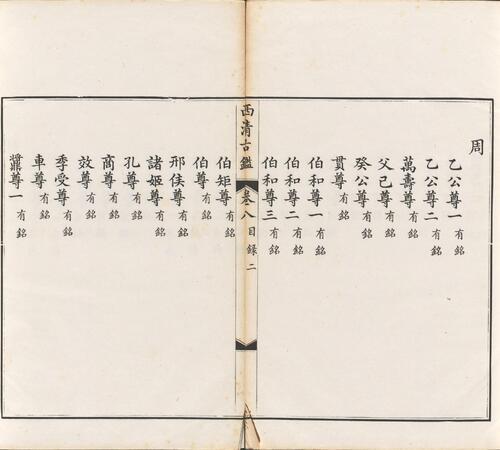 周
乙公尊一有銘
乙公尊二有銘
萬壽尊有銘
父己尊有銘
癸公尊有銘
貫尊有銘
伯和尊一有銘
伯和尊二有銘
伯和尊三有銘
西清古鑑 卷八目錄 二
伯矩尊有銘
伯尊有銘
邢侯尊有銘
諸姬尊有銘
孔尊有銘
商尊有銘
效尊有銘
車尊有銘
季受尊有銘
尊一有銘